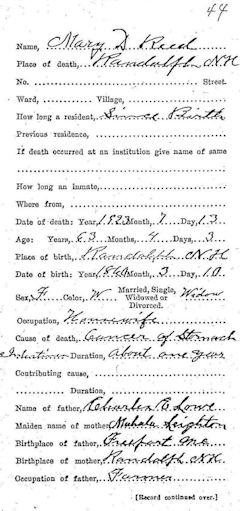 44
Name, Mary D Reed
Place of death, Randolph N.H
No. Street.
Ward, Village,
How long a resident, Since Birth
Previous residence,
If death occurred at an institution give name of same
How long an inmate,
Where from,
Date of death: Year, 1923 Month, 7 Day, 13
Age: Years, 63 Months, 4 Days, 3
Place of birth, Randolph N.H
Date of birth: Year, 1860 Month, 3 Day, 10
Sex, F Color, W Married, Single, Widowed or Divorced. Widow
Occupation, Housewife
Cause of death, Cancer of Stomach
Duration, About one year
Contributing cause,
Duration,
Name of father, Charles E Lowe
Maiden name of mother, Leighton
Birthplace of father, Freeport Me.
Birthplace of mother, Randolph N.H
Occupation of father, Farmer
[Record continued over.]